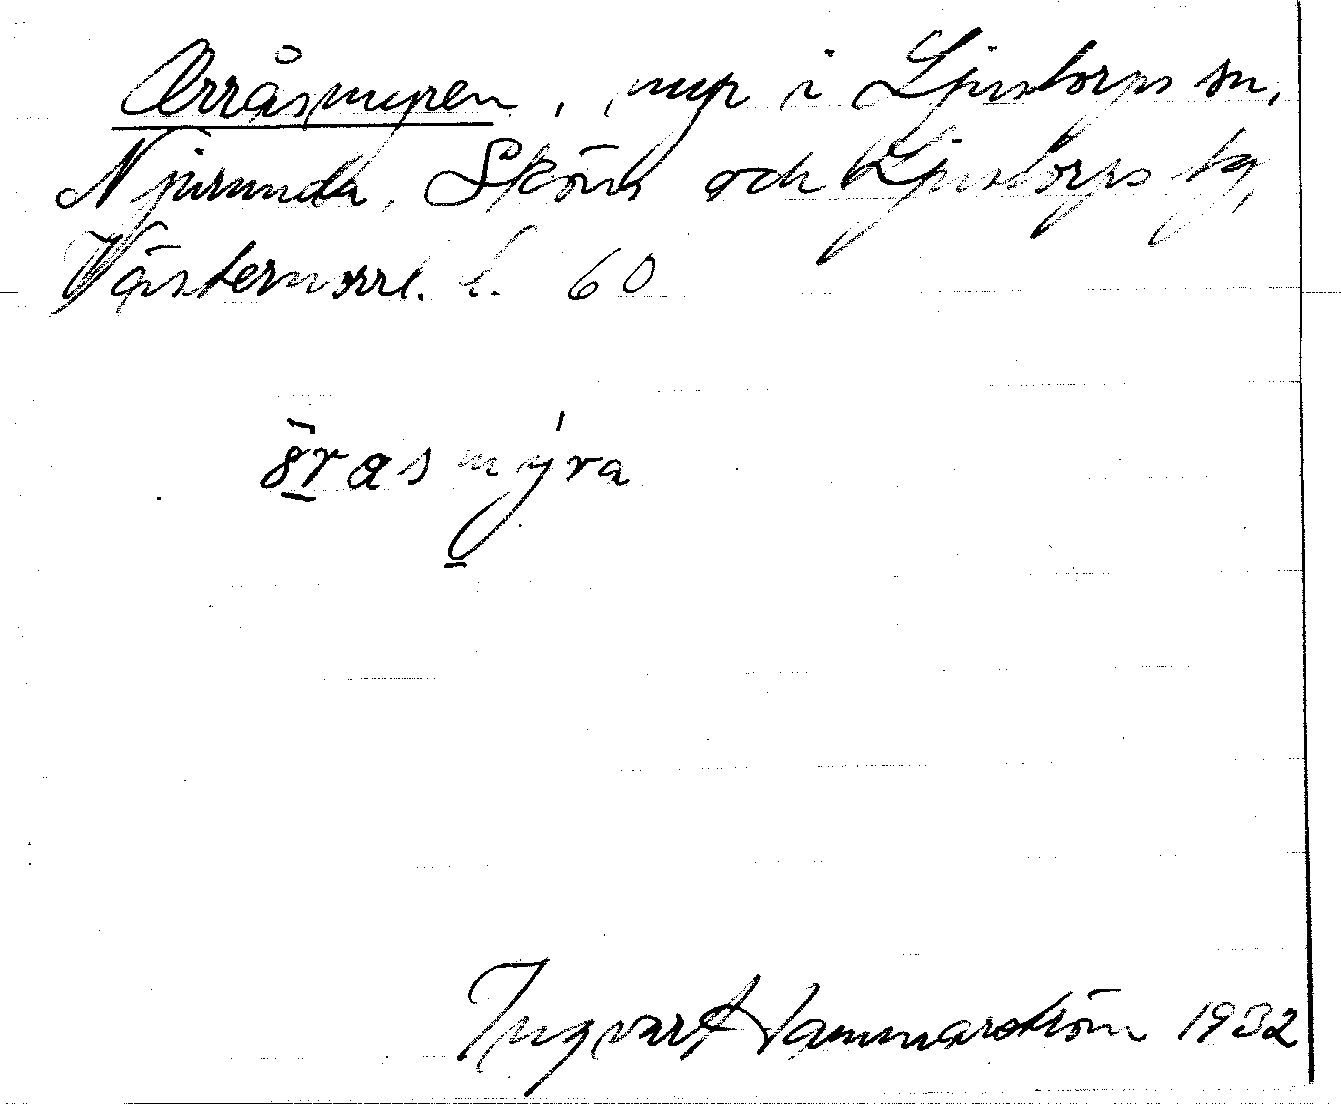 Orråsmyren, myr i Ljustorps sn,
Njurunda, Sköns och Ljustorps tg,
Västernorrl. l. 60
örasmýra
Ingvar Hammarström 1932